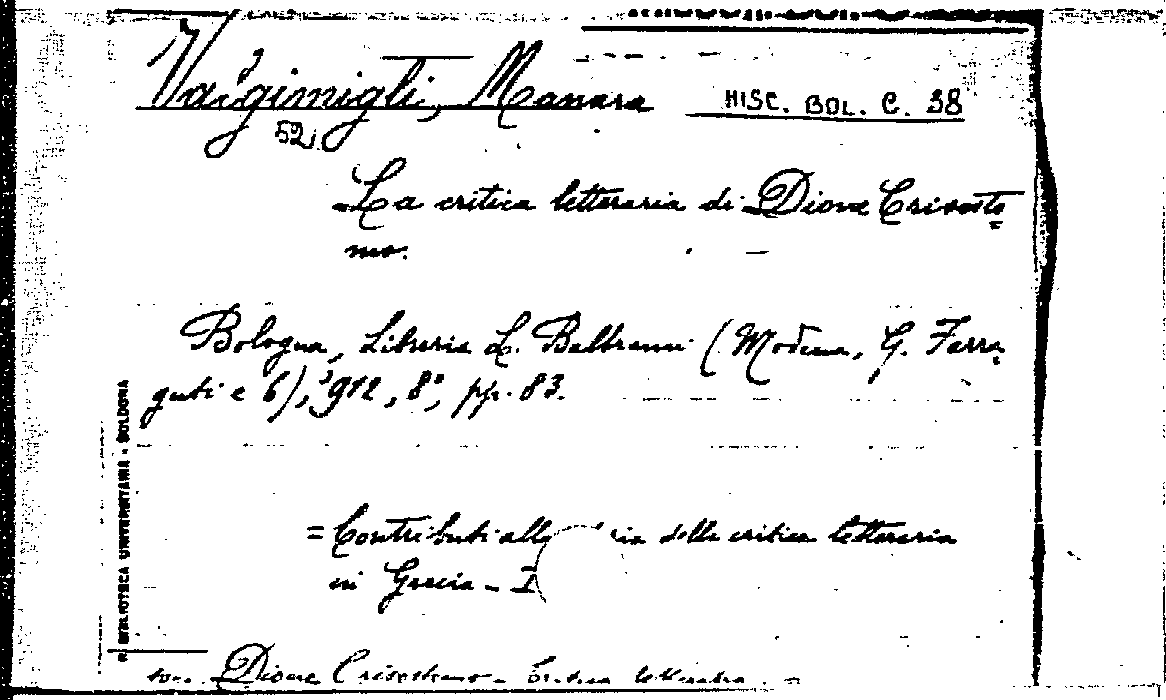 Valgimigli, Manara MISC. BOL. C. 38
52
La critica letteraria di Dione Crisosto=
mo.
Bologna, Libreria L. Beltrami (Modena, G. Ferra=
guti e C), 912, 8°, pp. 83.
= Contributi alla ria della critica letteraria
in Grecia - I
R. BIBLIOTECA UNIVERSITARIA - BOLOGNA
Dione Crisostomo - Critica letteraria -